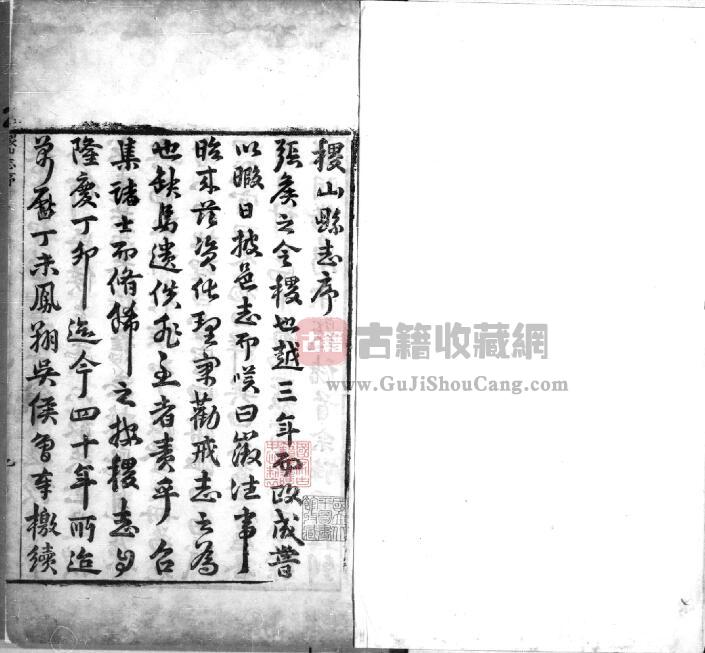 稷山縣志序
張矦之令稷也越三年而政成嘗
以暇日披邑志而嘆曰徵往事
昭来茲資化理寓勸戒志之為
也缺焉遺佚非主者責乎合
集諸士而脩緝之按稷志自
隆慶丁卯迄今四十年所迨
萬曆丁未鳳翔吳侯曾奉檄續
古籍
古籍收藏網
www.GuJiShouCang.com